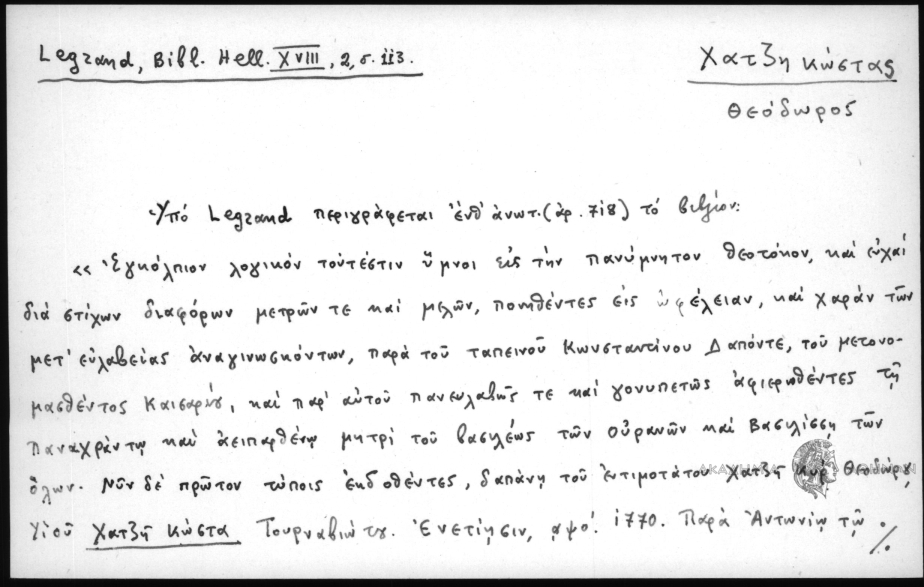 Legrand, Bibl. Hell. XVIII, 2, σ. 113.
Χατζῆ κώστας
Θεόδωρος
Ὑπό Legrand περιγράφεται ἐνθ' ἀνωτ. (ἀρ. 718) τό βιβλίον:
« Ἐγκόλπιον λογικόν τουτέστιν ὕμνοι εἰς τήν πανύμνητον Θεοτόκον, καί εὐχαί
διά στίχων διαφόρων μετρῶν τε καί μελῶν, πονηθέντες εἰς ὠφέλειαν, καί χαράν τῶν
μετ' εὐλαβείας ἀναγινωσκόντων, παρά τοῦ ταπεινοῦ Κωνσταντίνου Δαπόντε, τοῦ μετονο-
μασθέντος Καισαρίου, καί παρ' αὐτοῦ πανευλαβῶς τε καί γονυπετῶς ἀφιερωθέντες τῇ
Παναχράντῳ καί ἀειπαρθένῳ μητρί τοῦ βασιλέως τῶν οὐρανῶν καί Βασιλίσσῃ τῶν
ὅλων. Νῦν δέ πρῶτον τύποις ἐκδοθέντες, δαπάνῃ τοῦ ἐντιμοτάτου Χατζῆ κυρ Θεοδώρου,
Υἱοῦ Χατζῆ Κώστα Τουρναβιώτου. Ἐνετίησιν, αψο'. 1770. Παρά Ἀντωνίῳ τῷ ·/.